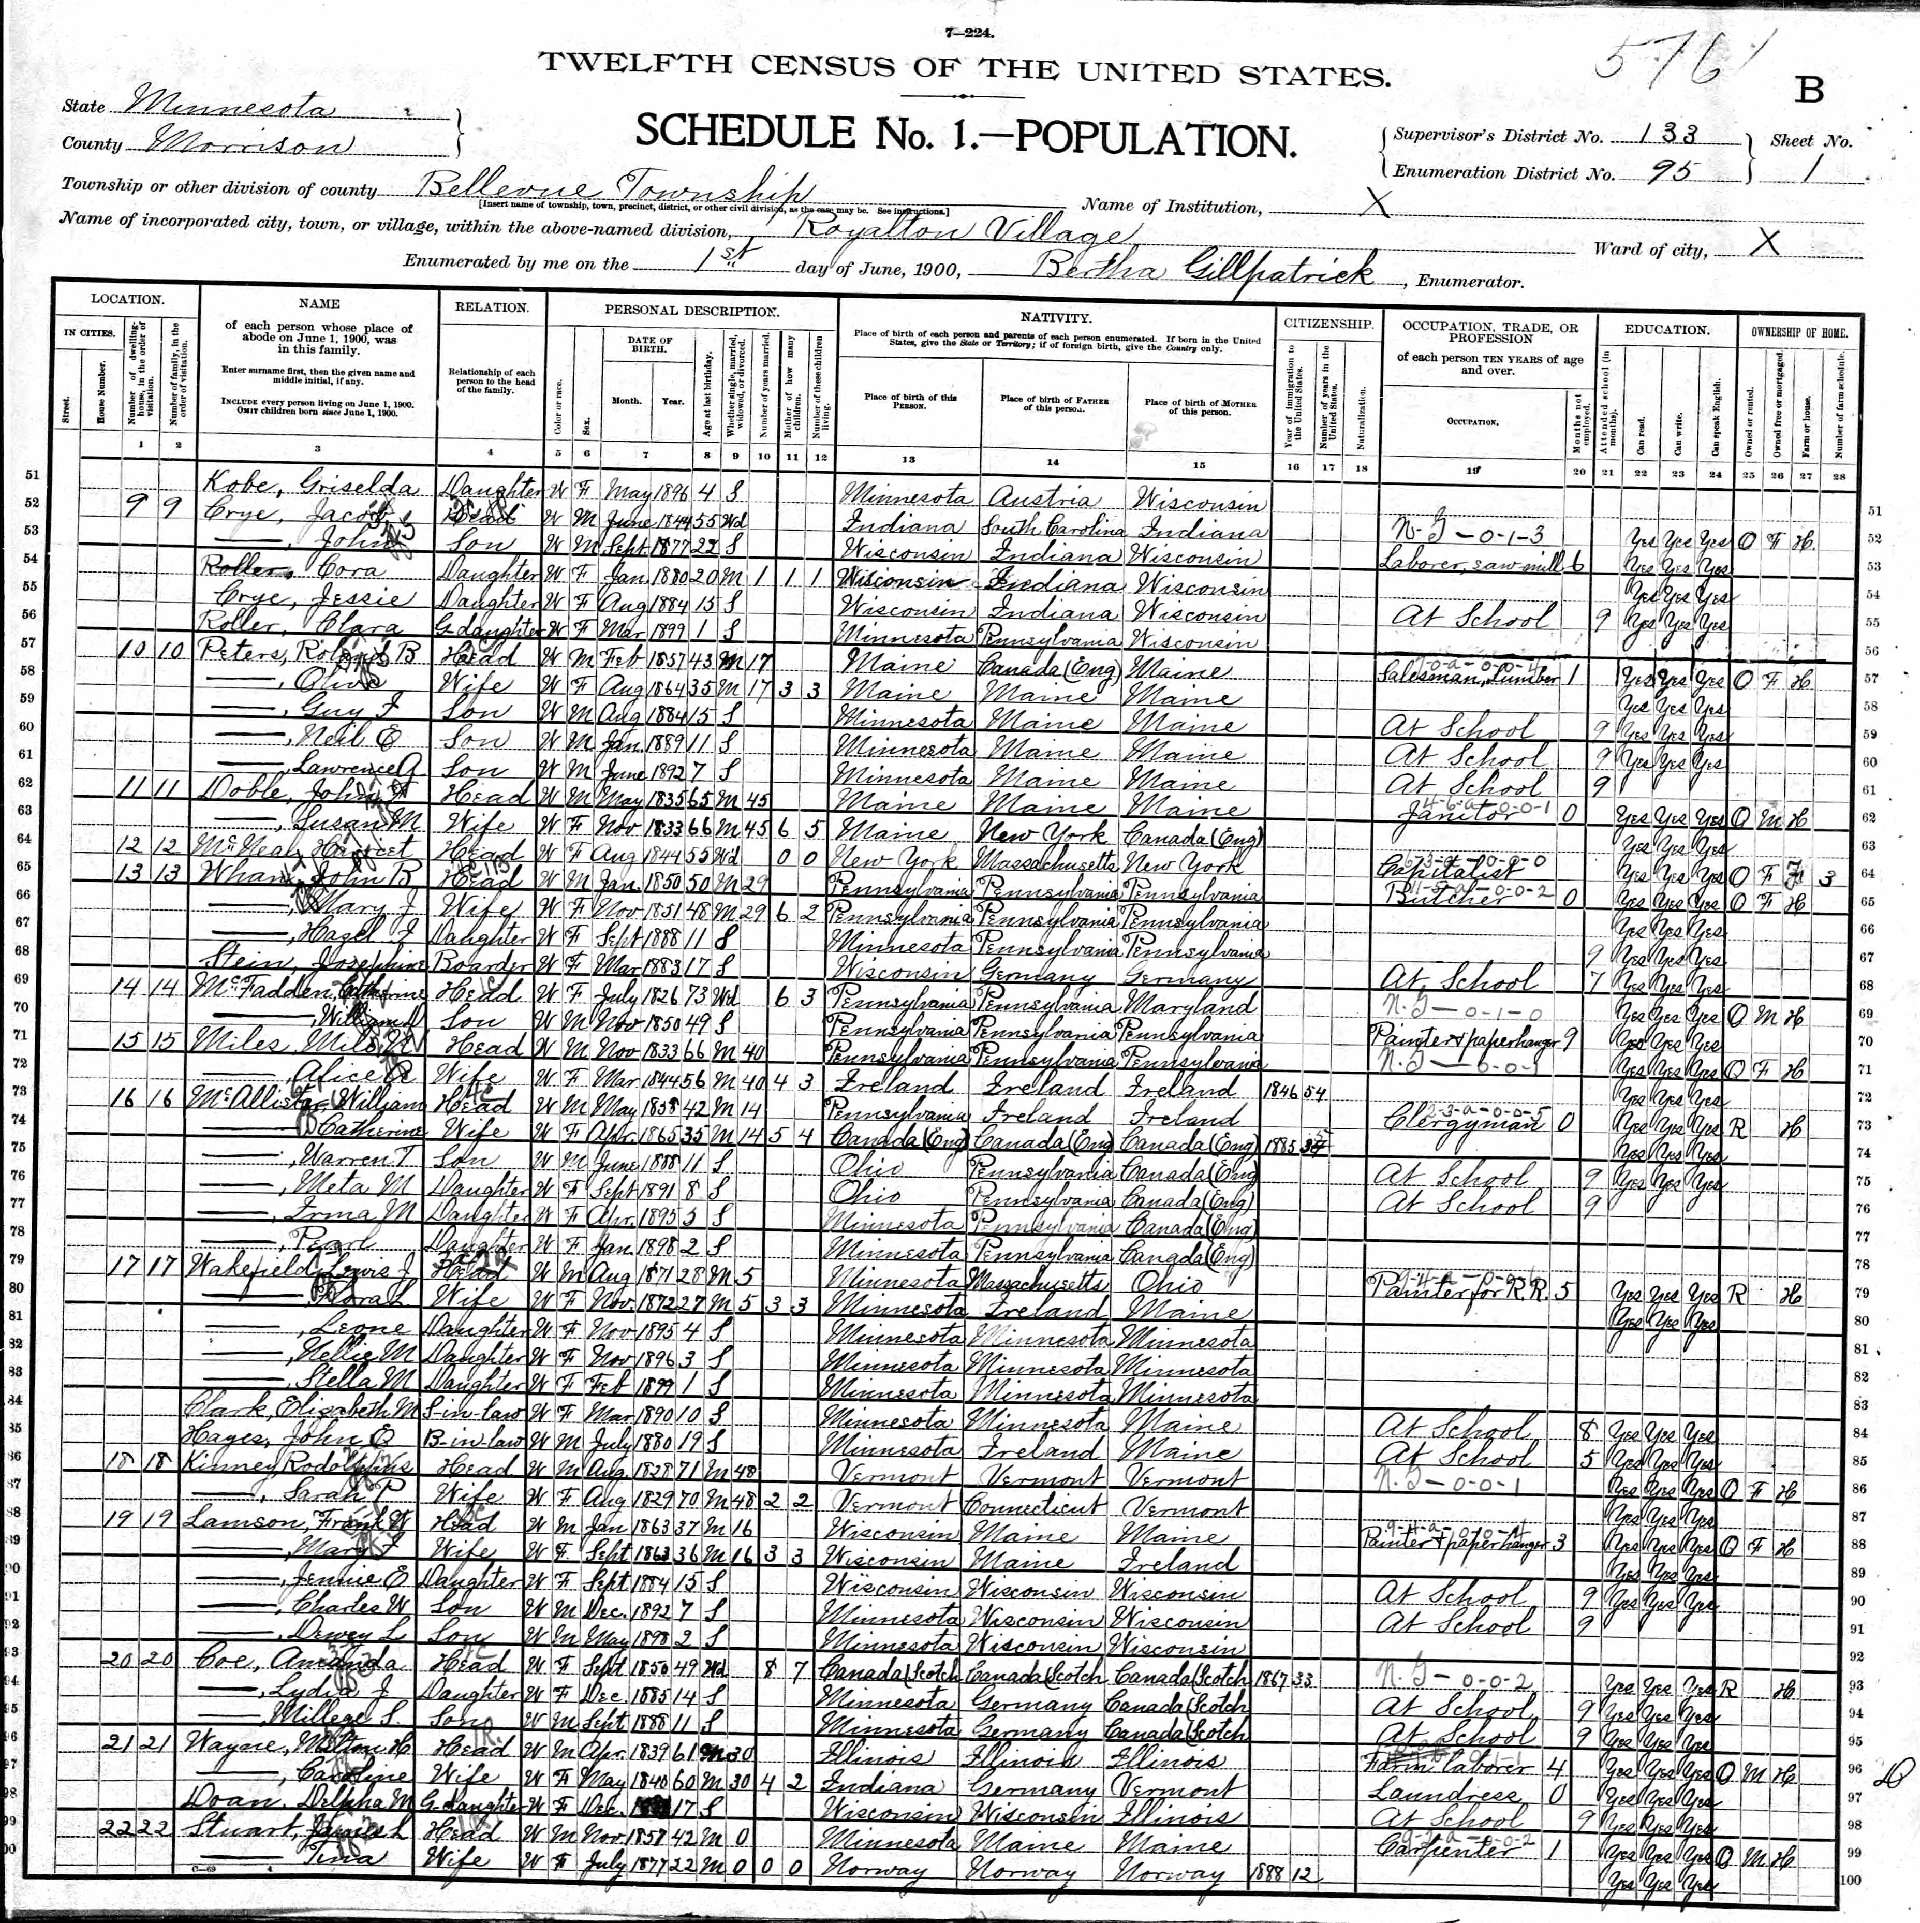 7—224.
TWELFTH CENSUS OF THE UNITED STATES.
576
B
State Minnesota
County Morrison
SCHEDULE No. 1.—POPULATION.
Supervisor's District No. 133
Enumeration District No. 95
Sheet No. 1
Township or other division of county Bellevue Township
[Insert name of township, town, precinct, district, or other civil division, as the case may be. See instructions.]
Name of Institution, X
Name of incorporated city, town, or village, within the above-named division, Royalton Village
Ward of city, X
Enumerated by me on the 1st day of June, 1900, Bertha Gillpatrick, Enumerator.
LOCATION. NAME RELATION. PERSONAL DESCRIPTION. NATIVITY. CITIZENSHIP. OCCUPATION, TRADE, OR PROFESSION EDUCATION. OWNERSHIP OF HOME.
IN CITIES. Street. House Number. Number of dwelling-house, in the order of visitation. Number of family, in the order of visitation.
of each person whose place of abode on June 1, 1900, was in this family.
Enter surname first, then the given name and middle initial, if any.
INCLUDE every person living on June 1, 1900. OMIT children born since June 1, 1900.
Relationship of each person to the head of the family.
Color or race. Sex. DATE OF BIRTH. Month. Year. Age at last birthday. Whether single, married, widowed, or divorced. Number of years married. Mother of how many children. Number of these children living.
Place of birth of each person and parents of each person enumerated. If born in the United States, give the State or Territory; if of foreign birth, give the Country only.
Place of birth of this PERSON. Place of birth of FATHER of this person. Place of birth of MOTHER of this person.
Year of immigration to the United States. Number of years in the United States. Naturalization.
of each person TEN YEARS of age and over.
OCCUPATION. Months not employed.
Attended school (in months). Can read. Can write. Can speak English.
Owned or rented. Owned free or mortgaged. Farm or house. Number of farm schedule.
1 2 3 4 5 6 7 8 9 10 11 12 13 14 15 16 17 18 19 20 21 22 23 24 25 26 27 28
51 Kobe, Griselda Daughter W F May 1896 4 S Minnesota Austria Wisconsin 51
52 9 9 Crye, Jacob Head W M June 1844 55 Wd Indiana South Carolina Indiana N-G-0-1-3 Yes Yes Yes O F H 52
53 ——, John Son W M Sept 1877 22 S Wisconsin Indiana Wisconsin Laborer, saw mill 6 Yes Yes Yes 53
54 Roller, Cora Daughter W F Jan 1880 20 M 1 1 1 Wisconsin Indiana Wisconsin Yes Yes Yes 54
55 Crye, Jessie Daughter W F Aug 1884 15 S Wisconsin Indiana Wisconsin At School 9 Yes Yes Yes 55
56 Roller, Clara G. daughter W F Mar 1899 1 S Minnesota Pennsylvania Wisconsin 56
57 10 10 Peters, Roland B Head W M Feb 1857 43 M 17 Maine Canada (Eng) Maine Salesman, Lumber 1 Yes Yes Yes O F H 57
58 ——, Olive Wife W F Aug 1864 35 M 17 3 3 Maine Maine Maine Yes Yes Yes 58
59 ——, Guy F Son W M Aug 1884 15 S Minnesota Maine Maine At School 9 Yes Yes Yes 59
60 ——, Neil E Son W M Jan 1889 11 S Minnesota Maine Maine At School 9 Yes Yes Yes 60
61 ——, Lawrence A Son W M June 1892 7 S Minnesota Maine Maine At School 9 61
62 11 11 Doble, John Head W M May 1835 65 M 45 Maine Maine Maine Janitor 0 Yes Yes Yes O M H 62
63 ——, Susan M Wife W F Nov 1833 66 M 45 6 5 Maine New York Canada (Eng) Yes Yes Yes 63
64 12 12 McNeal, Head W F Aug 1844 55 Wd 0 0 New York Massachusetts New York Capitalist Yes Yes Yes O F F 3 64
65 13 13 Wham, John B Head W M Jan. 1850 50 M 29 Pennsylvania Pennsylvania Pennsylvania Butcher 0 Yes Yes Yes O F H 65
66 ——, Mary J Wife W F Nov 1851 48 M 29 6 2 Pennsylvania Pennsylvania Pennsylvania Yes Yes Yes 66
67 ——, Hazel J Daughter W F Sept 1888 11 S Minnesota Pennsylvania Pennsylvania 9 Yes Yes Yes 67
68 Stein, Josephine Boarder W F Mar 1883 17 S Wisconsin Germany Germany At School 7 Yes Yes Yes 68
69 14 14 McFadden, Catherine Head W F July 1826 73 Wd 6 3 Pennsylvania Pennsylvania Maryland N.G-0-1-0 Yes Yes Yes O M H 69
70 ——, William Son W M Nov 1850 49 S Pennsylvania Pennsylvania Pennsylvania Painter & paperhanger 9 Yes Yes Yes 70
71 15 15 Miles, Milo Head W M Nov 1833 66 M 40 Pennsylvania Pennsylvania Pennsylvania N.G-0-0-1 Yes Yes Yes O F H 71
72 ——, Alice Wife W F Mar 1844 56 M 40 4 3 Ireland Ireland Ireland 1846 54 Yes Yes Yes 72
73 16 16 McAllister, William Head W M May 1858 42 M 14 Pennsylvania Ireland Ireland Clergyman 0 Yes Yes Yes R H 73
74 ——, Catherine Wife W F Apr. 1865 35 M 14 5 4 Canada (Eng) Canada (Eng) Canada (Eng) 1885 Yes Yes Yes 74
75 ——, Warren T Son W M June 1888 11 S Ohio Pennsylvania Canada (Eng) At School 9 Yes Yes Yes 75
76 ——, Meta M Daughter W F Sept 1891 8 S Ohio Pennsylvania Canada (Eng) At School 9 76
77 ——, Irma M Daughter W F Apr. 1895 5 S Minnesota Pennsylvania Canada (Eng) 77
78 ——, Pearl Daughter W F Jan. 1898 2 S Minnesota Pennsylvania Canada (Eng) 78
79 17 17 Wakefield, Lewis J Head W M Aug 1871 28 M 5 Minnesota Massachusetts Ohio Painter for R.R. 5 Yes Yes Yes R H 79
80 ——, Flora L Wife W F Nov. 1872 27 M 5 3 3 Minnesota Ireland Maine Yes Yes Yes 80
81 ——, Leone Daughter W F Nov 1895 4 S Minnesota Minnesota Minnesota 81
82 ——, Nellie M Daughter W F Nov 1896 3 S Minnesota Minnesota Minnesota 82
83 ——, Stella M Daughter W F Feb 1899 1 S Minnesota Minnesota Minnesota 83
84 Clark, Elisabeth M S-in-law W F Mar 1890 10 S Minnesota Minnesota Maine At School 8 Yes Yes Yes 84
85 Hages, John O B-in-law W M July 1880 19 S Minnesota Ireland Maine At School 5 Yes Yes Yes 85
86 18 18 Kinney, Rodolphus Head W M Aug. 1828 71 M 48 Vermont Vermont Vermont N.G-0-0-1 Yes Yes Yes O F H 86
87 ——, Sarah P Wife W F Aug 1829 70 M 48 2 2 Vermont Connecticut Vermont Yes Yes Yes 87
88 19 19 Lamson, Frank W Head W M Jan 1863 37 M 16 Wisconsin Maine Maine Painter & paperhanger 3 Yes Yes Yes O F H 88
89 ——, Mary J Wife W F Sept 1863 36 M 16 3 3 Wisconsin Maine Ireland Yes Yes Yes 89
90 ——, Jennie E Daughter W F Sept 1884 15 S Wisconsin Wisconsin Wisconsin At School 9 Yes Yes Yes 90
91 ——, Charles W Son W M Dec. 1892 7 S Minnesota Wisconsin Wisconsin At School 9 91
92 ——, Dewey L Son W M May 1898 2 S Minnesota Wisconsin Wisconsin 92
93 20 20 Coe, Amanda Head W F Sept 1850 49 Wd 8 7 Canada (Scotch Canada (Scotch Canada (Scotch 1867 33 N.G-0-0-2 Yes Yes Yes R H 93
94 ——, Lydia J Daughter W F Dec. 1885 14 S Minnesota Germany Canada (Scotch At School 9 Yes Yes Yes 94
95 ——, Millege S. Son W M Sept 1888 11 S Minnesota Germany Canada (Scotch At School 9 Yes Yes Yes 95
96 21 21 Wayne, Milton H Head W M Apr. 1839 61 M 30 Illinois Illinois Illinois Farm laborer 4 Yes Yes Yes O M H 96
97 ——, Caroline Wife W F May 1840 60 M 30 4 2 Indiana Germany Vermont Laundress 0 Yes Yes Yes 97
98 Doan, Delpha M G. daughter W F Dec. 17 S Wisconsin Wisconsin Illinois At School 9 Yes Yes Yes 98
99 22 22 Stuart, James L Head W M Nov. 1857 42 M 0 Minnesota Maine Maine Carpenter 1 Yes Yes Yes O M H 99
100 ——, Tina Wife W F July 1877 22 M 0 0 0 Norway Norway Norway 1888 12 Yes Yes Yes 100